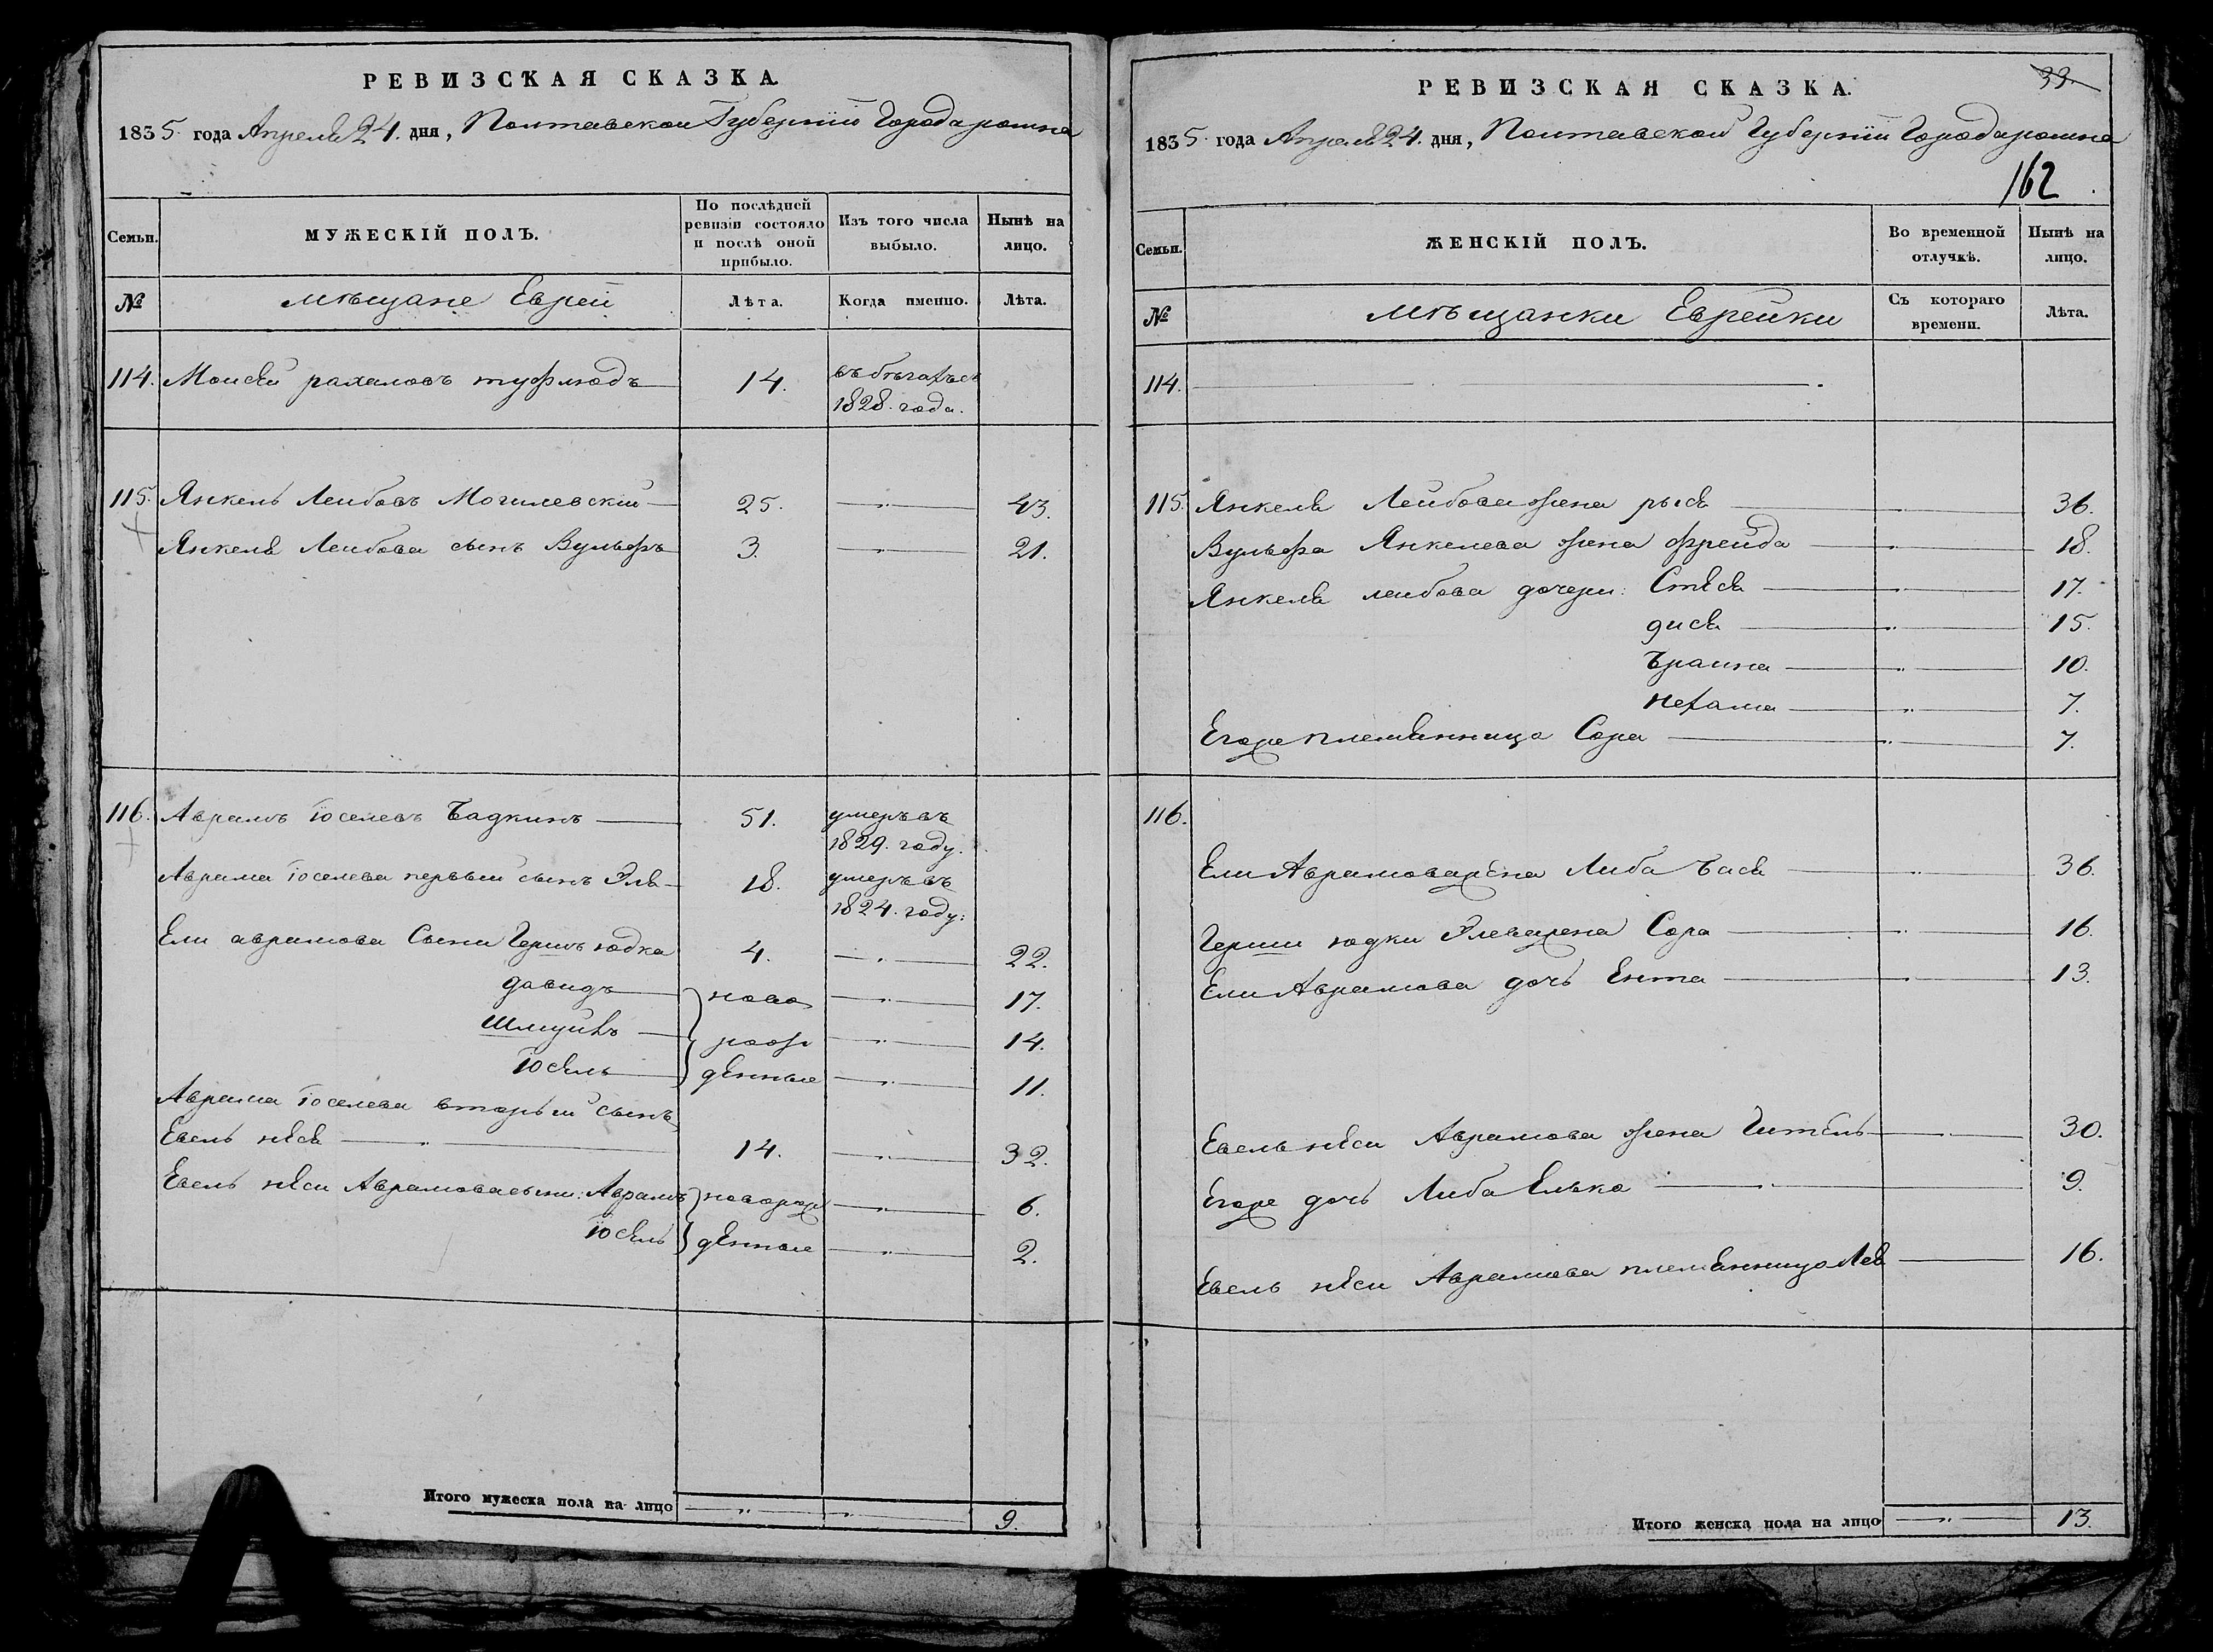 РЕВИЗСКАЯ СКАЗКА.
1835 года Апреля 24. дня, Полтавской Губернїи Города ромна
Семьи.
МУЖЕСКІЙ ПОЛЪ.
По послѣдней ревизіи состояло и послѣ оной прибыло.
Изъ того числа выбыло.
Нынѣ на лицо.
№
мѣщане Еврей
Лѣта.
Когда именно.
Лѣта.
114. Моисей рахмловъ 14.
1828. года.
115. Янкель Лейбовъ Могилевский 25. 43.
Янкеля Лейбова сынъ Вульфъ 3. 21.
116. Аврамъ Іоселевъ Бадкинъ 51. умеръ въ
1829. году.
Аврама Іоселева первый сынъ Эля 18. умеръ въ
1824. году:
Ели аврамова Сыны Гершъ юдка 4. 22.
давидъ ново 17.
Шмуйлъ рож 14.
Іосель денные 11.
Аврама Іоселева вторый сынъ
Евель 14. 32.
Евель Аврамова сыны: Аврамъ новорож 6.
Іосель денные 2.
Итого мужеска пола на лицо 9.
РЕВИЗСКАЯ СКАЗКА.
33.
1835 года Апреля 24. дня, Полтавской Губернїи Города ромна
162
Семьи.
ЖЕНСКІЙ ПОЛЪ.
Во временной отлучкѣ.
Нынѣ на лицо.
№
мѣщанки Еврейки
Съ котораго времени.
Лѣта.
114.
115. Янкеля Лейбова жена рыся 36.
Вульфа Янкелева жена фрейда 18.
Янкеля лейбова дочери: Стеся 17.
дися 15.
Браина 10.
Нехама 7.
Егоже племянница Сора 7.
116.
Ели Аврамова жена Либа Бася 36.
Герши юдки Элева жена Сора 16.
Ели Аврамова дочь Ента 13.
Евель Аврамова жена Гитель 30.
Егоже дочь Либа Елька 9.
Евель Аврамова племянница Лея 16.
Итого женска пола на лицо 13.